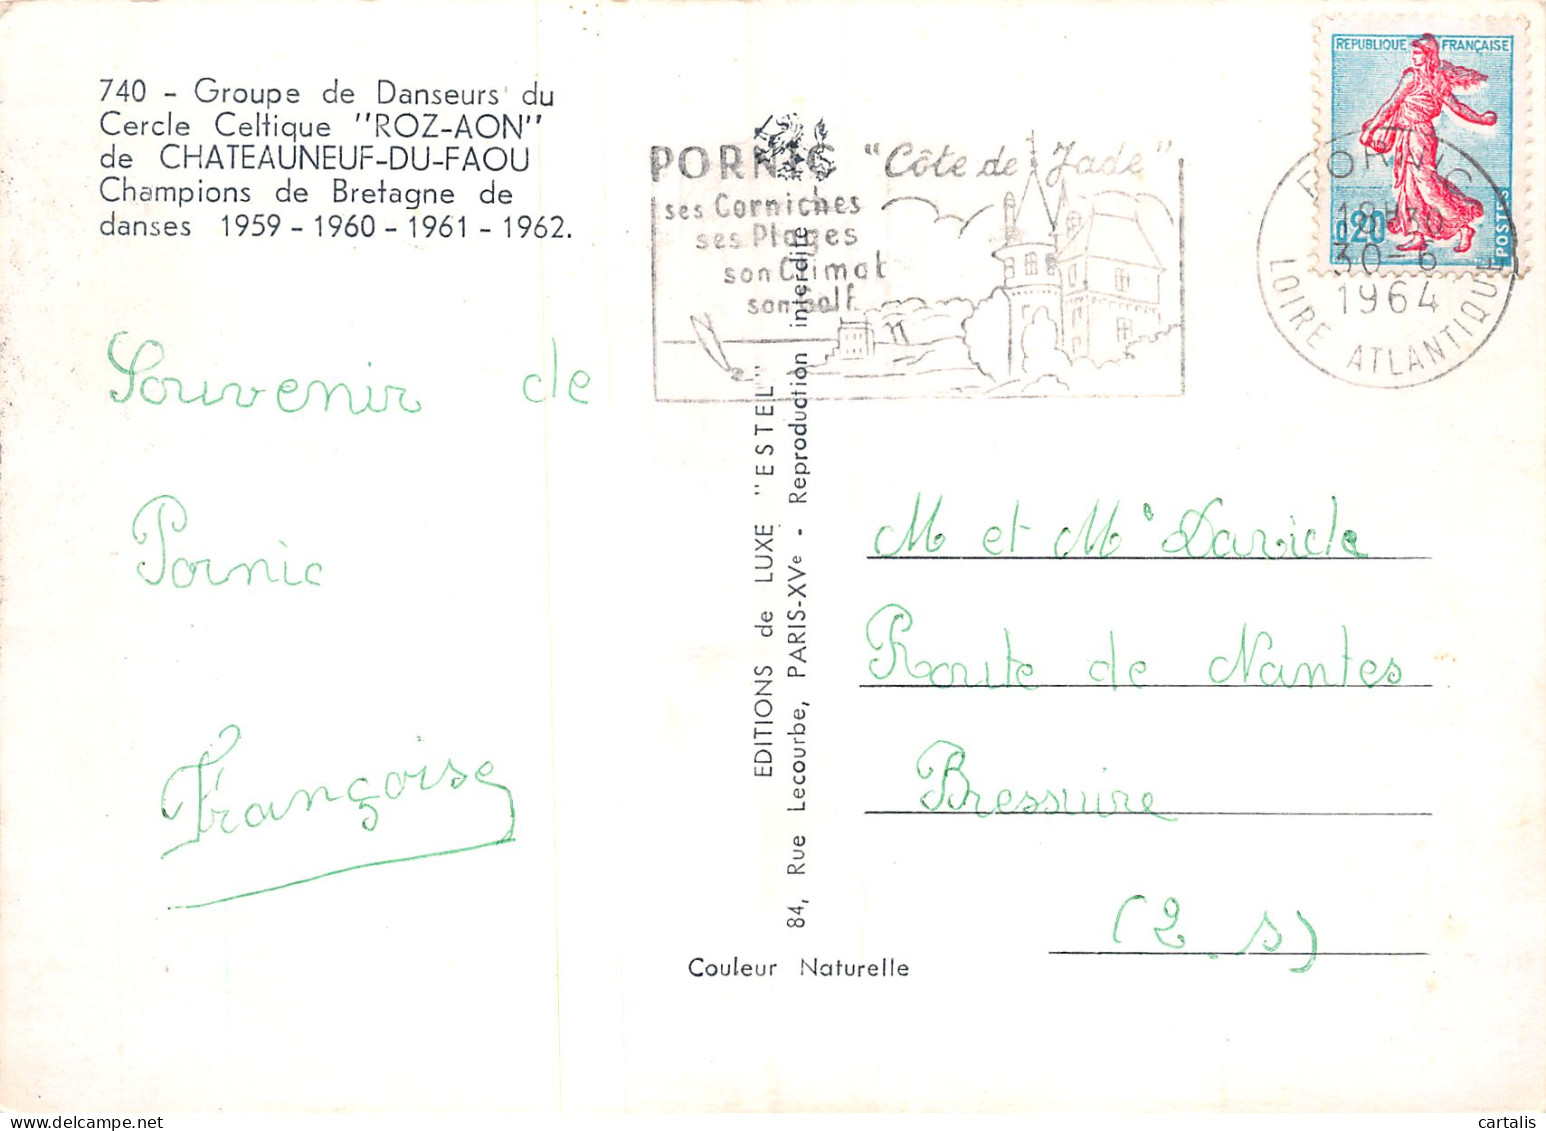 740 - Groupe de Danseurs du
Cercle Celtique "ROZ-AON"
de CHATEAUNEUF-DU-FAOU
Champions de Bretagne de
danses 1959 - 1960 - 1961 - 1962.
Souvenir de
Pornic
Françoise
EDITIONS de LUXE "ESTEL"
84, Rue Lecourbe, PARIS-XVe - Reproduction interdite
Couleur Naturelle
PORNIC "Côte de Jade"
ses Corniches
ses Plages
son Climat
son Golf
REPUBLIQUE FRANÇAISE
0,20
POSTES
PORNIC
18H30
30-6
1964
LOIRE ATLANTIQUE
M et Me
Route de Nantes
Bressuire
(2 S)
cartalis